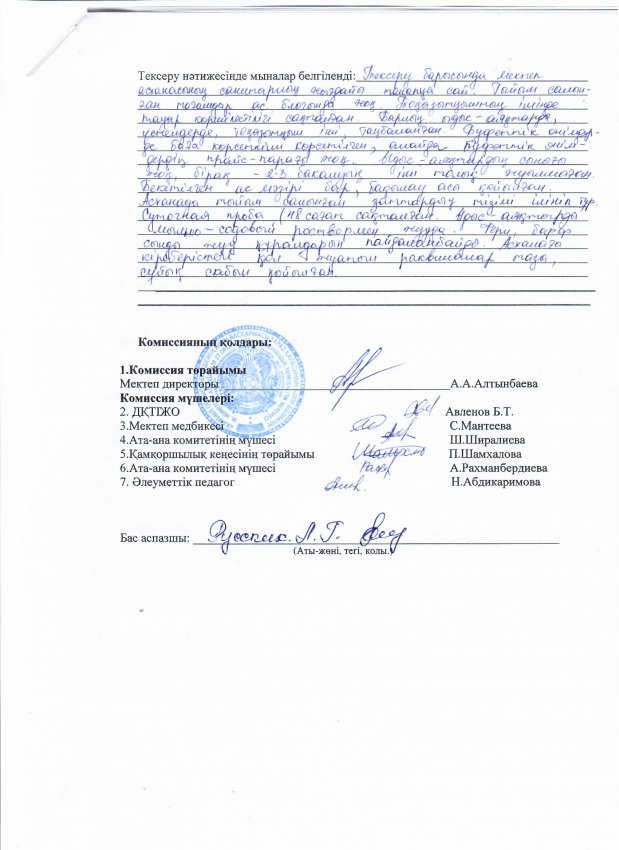 Тексеру нәтижесінде мыналар белгіленді: Тексеру барысында мектеп
асханасының санитарлық жағдайы талапқа сай. Тыйым салын-
ған тағамдар ас блогында жоқ. Тоңазытқыштың ішінде
тауар көршілестігі сақталған. Барлық ыдыс-аяқтарда,
үстелдерде, тоңазытқыш іші, таңбаланған. Буфеттік өнімдер-
де баға көрсеткіші көрсетілген, алайда буфеттік өнім-
дердің прайс-парағы жоқ. Ыдыс-аяқтардың сынығы
жоқ, бірақ 2-3 бакалдың іші толық жуылмаған.
Бекітілген ас мәзірі бар, бақылау асы қойылған.
Асханада тыйым салынған заттардың тізімі ілініп тұр.
Суточная проба (48 сағат сақталған. Ыдыс-аяқтарды
мыльно-содовый раствормен жууда. Фери, барф
сынды жуу құралдарын пайдаланбайды. Асханаға
кіреберістегі қол жуатын раквиналар таза,
сұйық сабын қойылған.
Комиссияның қолдары:
1.Комиссия төрайымы
Мектеп директоры А.А.Алтынбаева
Комиссия мүшелері:
2. ДҚТІЖО Авленов Б.Т.
3.Мектеп медбикесі С.Мантеева
4.Ата-ана комитетінің мүшесі Ш.Ширалиева
5.Қамқоршылық кеңесінің төрайымы П.Шамхалова
6.Ата-ана комитетінің мүшесі А.Рахманбердиева
7. Әлеуметтік педагог Н.Абдикаримова
Бас аспазшы: Русских. Л. Г.
(Аты-жөні, тегі, қолы.)